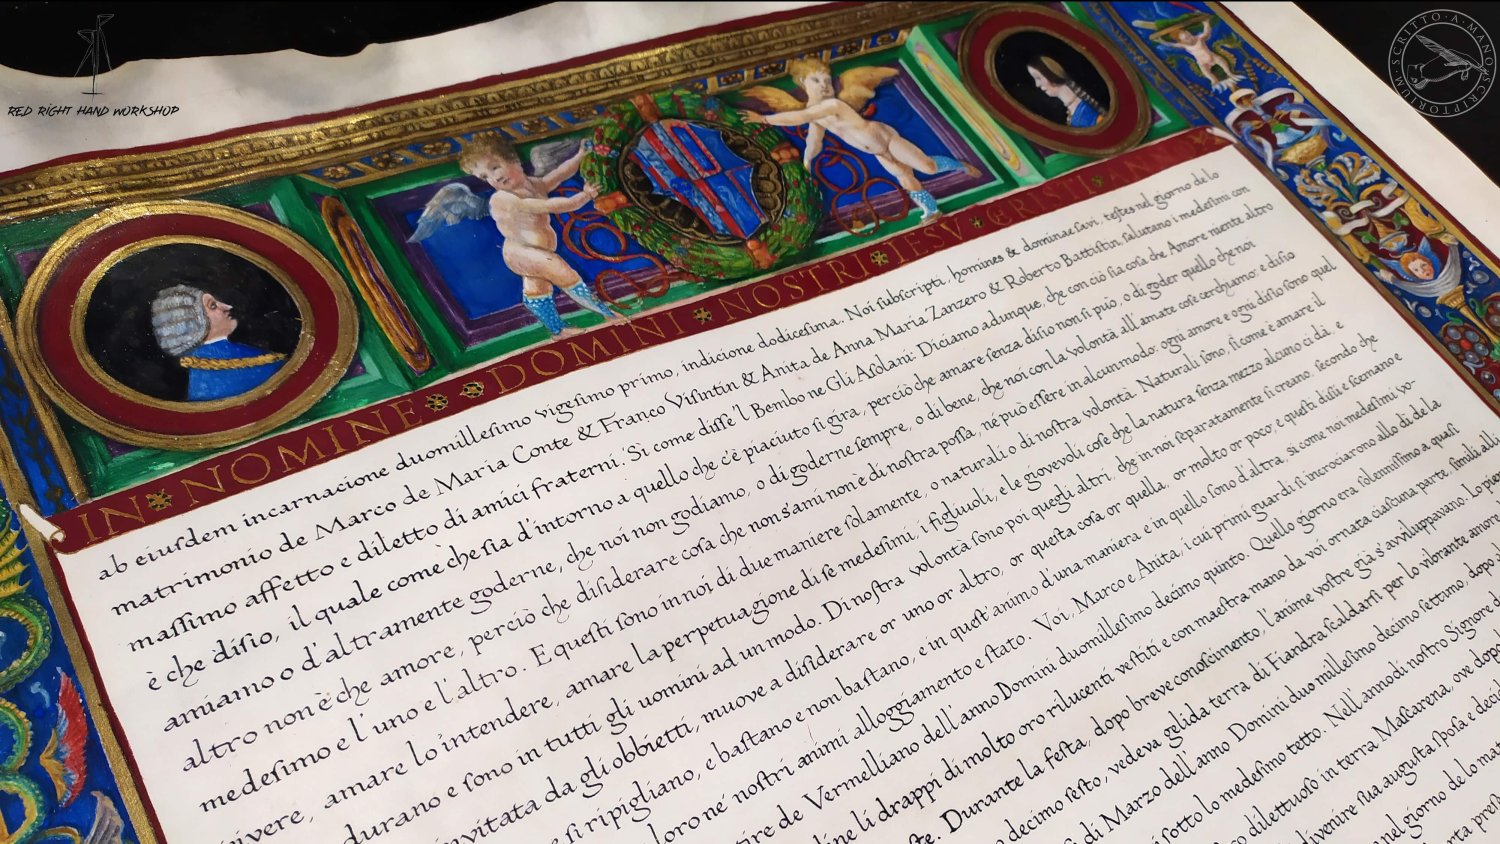 RED RIGHT HAND WORKSHOP
SCRITTO·A·MANO SCRIPTORIUM
IN NOMINE DOMINI NOSTRI IESV CRISTI ANNO
ab eiuſdem incarnacione duomilleſimo vigeſimo primo, indicione dodiceſima. Noi ſubſcripti, homines & dominae ſavi, teſtes nel giorno de lo
matrimonio de Marco de Maria Conte & Franco Viſintin & Anita de Anna Maria Zanzero & Roberto Battiſtin, ſalutano i medeſimi con
maſſimo affetto e diletto di amici fraterni. Sì come diſſe 'l Bembo ne Gli Aſolani: Diciamo adunque, che con ciò ſia coſa che Amore niente altro
è che diſio, il quale come che ſia d'intorno a quello che c'è piaciuto ſi gira, perciò che amare ſenza diſio non ſi può, o di goder quello che noi
amiamo o d'altramente goderne, che noi non godiamo, o di goderne ſempre, o di bene, che noi con la volontà all'amate coſe cerchiamo; e diſio
altro non è che amore, perciò che diſiderare coſa che non s'ami non è di noſtra poſſa, né può eſſere in alcun modo: ogni amore e ogni diſio ſono quel
medeſimo e l'uno e l'altro. E queſti ſono in noi di due maniere ſolamente, o naturali o di noſtra volontà. Naturali ſono, ſì come è amare il
vivere, amare lo intendere, amare la perpetuagione di ſe medeſimi, i figliuoli, e le giovevoli coſe che la natura ſenza mezzo alcuno ci dà, e
durano e ſono in tutti gli uomini ad un modo. Di noſtra volontà ſono poi quegli altri, che in noi ſeparatamente ſi creano, ſecondo che
invitata da gli obbietti, muove a diſiderare or uno or altro, or queſta coſa or quella, or molto or poco; e queſti diſii e ſcemano e
ſi ripigliano, e baſtano e non baſtano, e in queſt'animo d'una maniera e in quello ſono d'altra, sì come noi medeſimi vo-
loro ne' noſtri animi alloggiamento e ſtato. Voi, Marco e Anita, i cui primi guardi ſi incrociarono allo dì de la
de Vermelliano dell'anno Domini duomilleſimo decimo quinto. Quello giorno era ſolenniſſimo a quaſi
li drappi di molto oro rilucenti veſtiti e con maeſtra mano da voi ornata ciaſcuna parte, ſimili alli
Durante la feſta, dopo breve conoſcimento, l'anime voſtre già s'avviluppavano. Lo
decimo ſeſto, vedeva gelida terra di Fiandra ſcaldarſi per lo vibrante amore
di Marzo dell'anno Domini duo milleſimo decimo ſettimo, dopo
ſotto lo medeſimo tetto. Nell'anno di noſtro Signore
dilettuoſo in terra Maſcarena, ove
divenire ſua auguſta ſpoſa e
nel giorno de lo